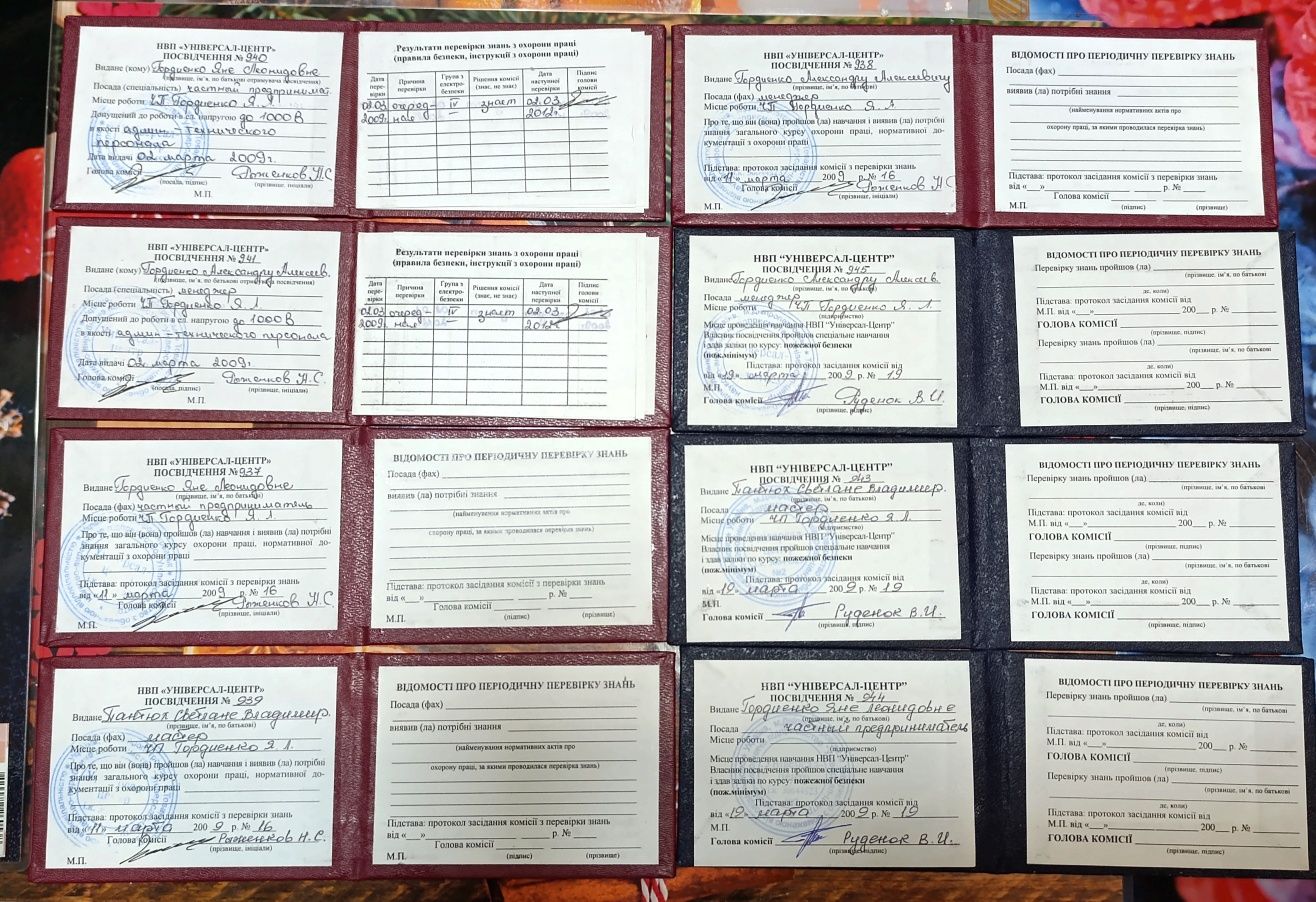 НВП «УНІВЕРСАЛ-ЦЕНТР»
ПОСВІДЧЕННЯ № 940
Видане (кому) Гордиенко Яне Леонидовне
(прізвище, ім'я, по батькові отримувача посвідчення)
Посада (спеціальность) частный предпринимат.
Місце роботи ЧП Гордиенко Я. Л.
Допущений до роботи в ел. напругою до 1000 В
в якості админ-технического
персонала
Дата видачі 02 марта 2009г.
Голова комісії Рыженков Н.С.
(посада, підпис) (прізвище, ініціали)
М.П.
Результати перевірки знань з охорони праці
(правила безпеки, інструкції з охорони праці)
Дата перевірки Причина перевірки Група з електробезпеки Рішення комісії (знає, не знає) Дата наступної перевірки Підпис голови комісії
02.03 очеред- IV знает 02.03
2009г. ная 2012г.
НВП «УНІВЕРСАЛ-ЦЕНТР»
ПОСВІДЧЕННЯ № 938
Видано Гордиенко Александру Алексеевичу
(прізвище, ім'я, по батькові)
Посада (фах) менеджер
Місце роботи ЧП Гордиенко Я. Л
Про те, що він (вона) пройшов (ла) навчання і виявив (ла) потрібні
знання загального курсу охорони праці, нормативної до-
кументації з охорони праці
Підстава: протокол засідання комісії з перевірки знань
від «11» марта 2009 р. № 16
Голова комісії Рыженков Н.С.
(прізвище, ініціали)
М.П.
ВІДОМОСТІ ПРО ПЕРІОДИЧНУ ПЕРЕВІРКУ ЗНАНЬ
Посада (фах)
виявив (ла) потрібні знання
(найменування нормативних актів про
охорону праці, за якими проводилася перевірка знань)
Підстава: протокол засідання комісії з перевірки знань
від «___» р. №
Голова комісії
М.П. (підпис) (прізвище)
НВП «УНІВЕРСАЛ-ЦЕНТР»
ПОСВІДЧЕННЯ № 941
Видане (кому) Гордиенко Александру Алексеев.
(прізвище, ім'я, по батькові отримувача посвідчення)
Посада (спеціальность) менеджер
Місце роботи ЧП Гордиенко Я Л
Допущений до роботи в ел. напругою до 1000 В
в якості админ-технического персонала
Дата видачі 02 марта 2009г.
Голова комісії Рыженков Н.С.
(посада, підпис) (прізвище, ініціали)
М.П.
Результати перевірки знань з охорони праці
(правила безпеки, інструкції з охорони праці)
Дата перевірки Причина перевірки Група з електробезпеки Рішення комісії (знає, не знає) Дата наступної перевірки Підпис голови комісії
02.03 очеред- IV знает 02.03.
2009г. ная 2012г.
НВП “УНІВЕРСАЛ-ЦЕНТР”
ПОСВІДЧЕННЯ № 945
Видано Гордиенко Александру Алексеев.
(прізвище, ім'я, по батькові)
Посада менеджер
Місце роботи ЧП Гордиенко Я. Л.
(підприємство)
Місце проведення навчання НВП “Універсал-Центр”
Власник посвідчення пройшов спеціальне навчання
і здав заліки по курсу: пожежної безпеки
(пож.мінімум)
Підстава: протокол засідання комісії від
від «19» марта 2009 р. № 19
М.П.
Голова комісії Руденок В.И.
(прізвище, підпис)
ВІДОМОСТІ ПРО ПЕРІОДИЧНУ ПЕРЕВІРКУ ЗНАНЬ
Перевірку знань пройшов (ла)
(прізвище, ім'я, по батькові
де, коли)
Підстава: протокол засідання комісії від
М.П. від «___» 200__ р. №
ГОЛОВА КОМІСІЇ
(прізвище, підпис)
Перевірку знань пройшов (ла)
(прізвище, ім'я, по батькові
де, коли)
Підстава: протокол засідання комісії від
М.П. від «___» 200__ р. №
ГОЛОВА КОМІСІЇ
(прізвище, підпис)
НВП «УНІВЕРСАЛ-ЦЕНТР»
ПОСВІДЧЕННЯ № 937
Видане Гордиенко Яне Леонидовне
(прізвище, ім'я, по батькові)
Посада (фах) частный предприниматель
Місце роботи ЧП Гордиенко Я Л.
Про те, що він (вона) пройшов (ла) навчання і виявив (ла) потрібні
знання загального курсу охорони праці, нормативної до-
кументації з охорони праці
Підстава: протокол засідання комісії з перевірки знань
від «11» марта 2009 р. № 16
Голова комісії Рыженков Н.С.
(прізвище, ініціали)
М.П.
ВІДОМОСТІ ПРО ПЕРІОДИЧНУ ПЕРЕВІРКУ ЗНАНЬ
Посада (фах)
виявив (ла) потрібні знання
(найменування нормативних актів про
охорону праці, за якими проводилася перевірка знань)
Підстава: протокол засідання комісії з перевірки знань
від «___» р. №
Голова комісії
М.П. (підпис) (прізвище)
НВП “УНІВЕРСАЛ-ЦЕНТР”
ПОСВІДЧЕННЯ № 943
Видано Пантюх Светлане Владимир.
(прізвище, ім'я, по батькові)
Посада мастер
Місце роботи ЧП Гордиенко Я. Л.
(підприємство)
Місце проведення навчання НВП “Універсал-Центр”
Власник посвідчення пройшов спеціальне навчання
і здав заліки по курсу: пожежної безпеки
(пож.мінімум)
Підстава: протокол засідання комісії від
від «19» марта 2009 р. № 19
М.П.
Голова комісії Руденок В.И.
(прізвище, підпис)
ВІДОМОСТІ ПРО ПЕРІОДИЧНУ ПЕРЕВІРКУ ЗНАНЬ
Перевірку знань пройшов (ла)
(прізвище, ім'я, по батькові
де, коли)
Підстава: протокол засідання комісії від
М.П. від «___» 200__ р. №
ГОЛОВА КОМІСІЇ
(прізвище, підпис)
Перевірку знань пройшов (ла)
(прізвище, ім'я, по батькові
де, коли)
Підстава: протокол засідання комісії від
М.П. від «___» 200__ р. №
ГОЛОВА КОМІСІЇ
(прізвище, підпис)
НВП «УНІВЕРСАЛ-ЦЕНТР»
ПОСВІДЧЕННЯ № 939
Видане Пантюх Светлане Владимир.
(прізвище, ім'я, по батькові)
Посада (фах) мастер
Місце роботи ЧП Гордиенко Я Л.
Про те, що він (вона) пройшов (ла) навчання і виявив (ла) потрібні
знання загального курсу охорони праці, нормативної до-
кументації з охорони праці
Підстава: протокол засідання комісії з перевірки знань
від «11» марта 2009 р. № 16
Голова комісії Рыженков Н.С.
(прізвище, ініціали)
М.П.
ВІДОМОСТІ ПРО ПЕРІОДИЧНУ ПЕРЕВІРКУ ЗНАНЬ
Посада (фах)
виявив (ла) потрібні знання
(найменування нормативних актів про
охорону праці, за якими проводилася перевірка знань)
Підстава: протокол засідання комісії з перевірки знань
від «___» р. №
Голова комісії
М.П. (підпис) (прізвище)
НВП “УНІВЕРСАЛ-ЦЕНТР”
ПОСВІДЧЕННЯ № 944
Видано Гордиенко Яне Леонидовне
(прізвище, ім'я, по батькові)
Посада частный предприниматель
Місце роботи
(підприємство)
Місце проведення навчання НВП “Універсал-Центр”
Власник посвідчення пройшов спеціальне навчання
і здав заліки по курсу: пожежної безпеки
(пож.мінімум)
Підстава: протокол засідання комісії від
від «19» марта 2009 р. № 19
М.П.
Голова комісії Руденок В.И.
(прізвище, підпис)
ВІДОМОСТІ ПРО ПЕРІОДИЧНУ ПЕРЕВІРКУ ЗНАНЬ
Перевірку знань пройшов (ла)
(прізвище, ім'я, по батькові
де, коли)
Підстава: протокол засідання комісії від
М.П. від «___» 200__ р. №
ГОЛОВА КОМІСІЇ
(прізвище, підпис)
Перевірку знань пройшов (ла)
(прізвище, ім'я, по батькові
де, коли)
Підстава: протокол засідання комісії від
М.П. від «___» 200__ р. №
ГОЛОВА КОМІСІЇ
(прізвище, підпис)